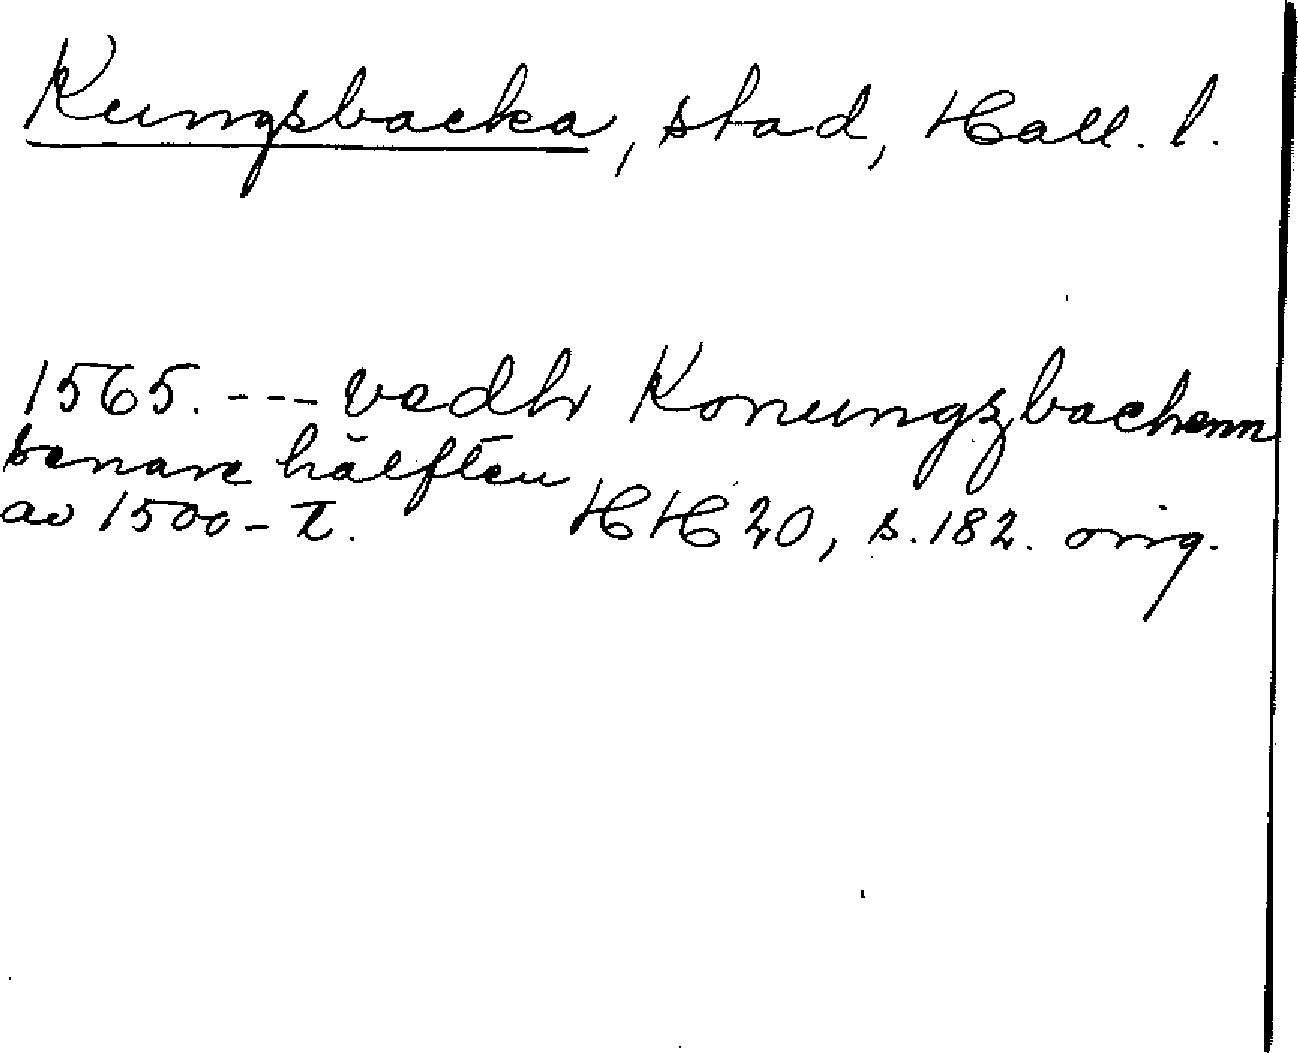 Kungsbacka, stad, Hall. l.
1565. --- vedh Konungzbachenn
senare hälften
av 1500-t. HH 20, s. 182. orig.